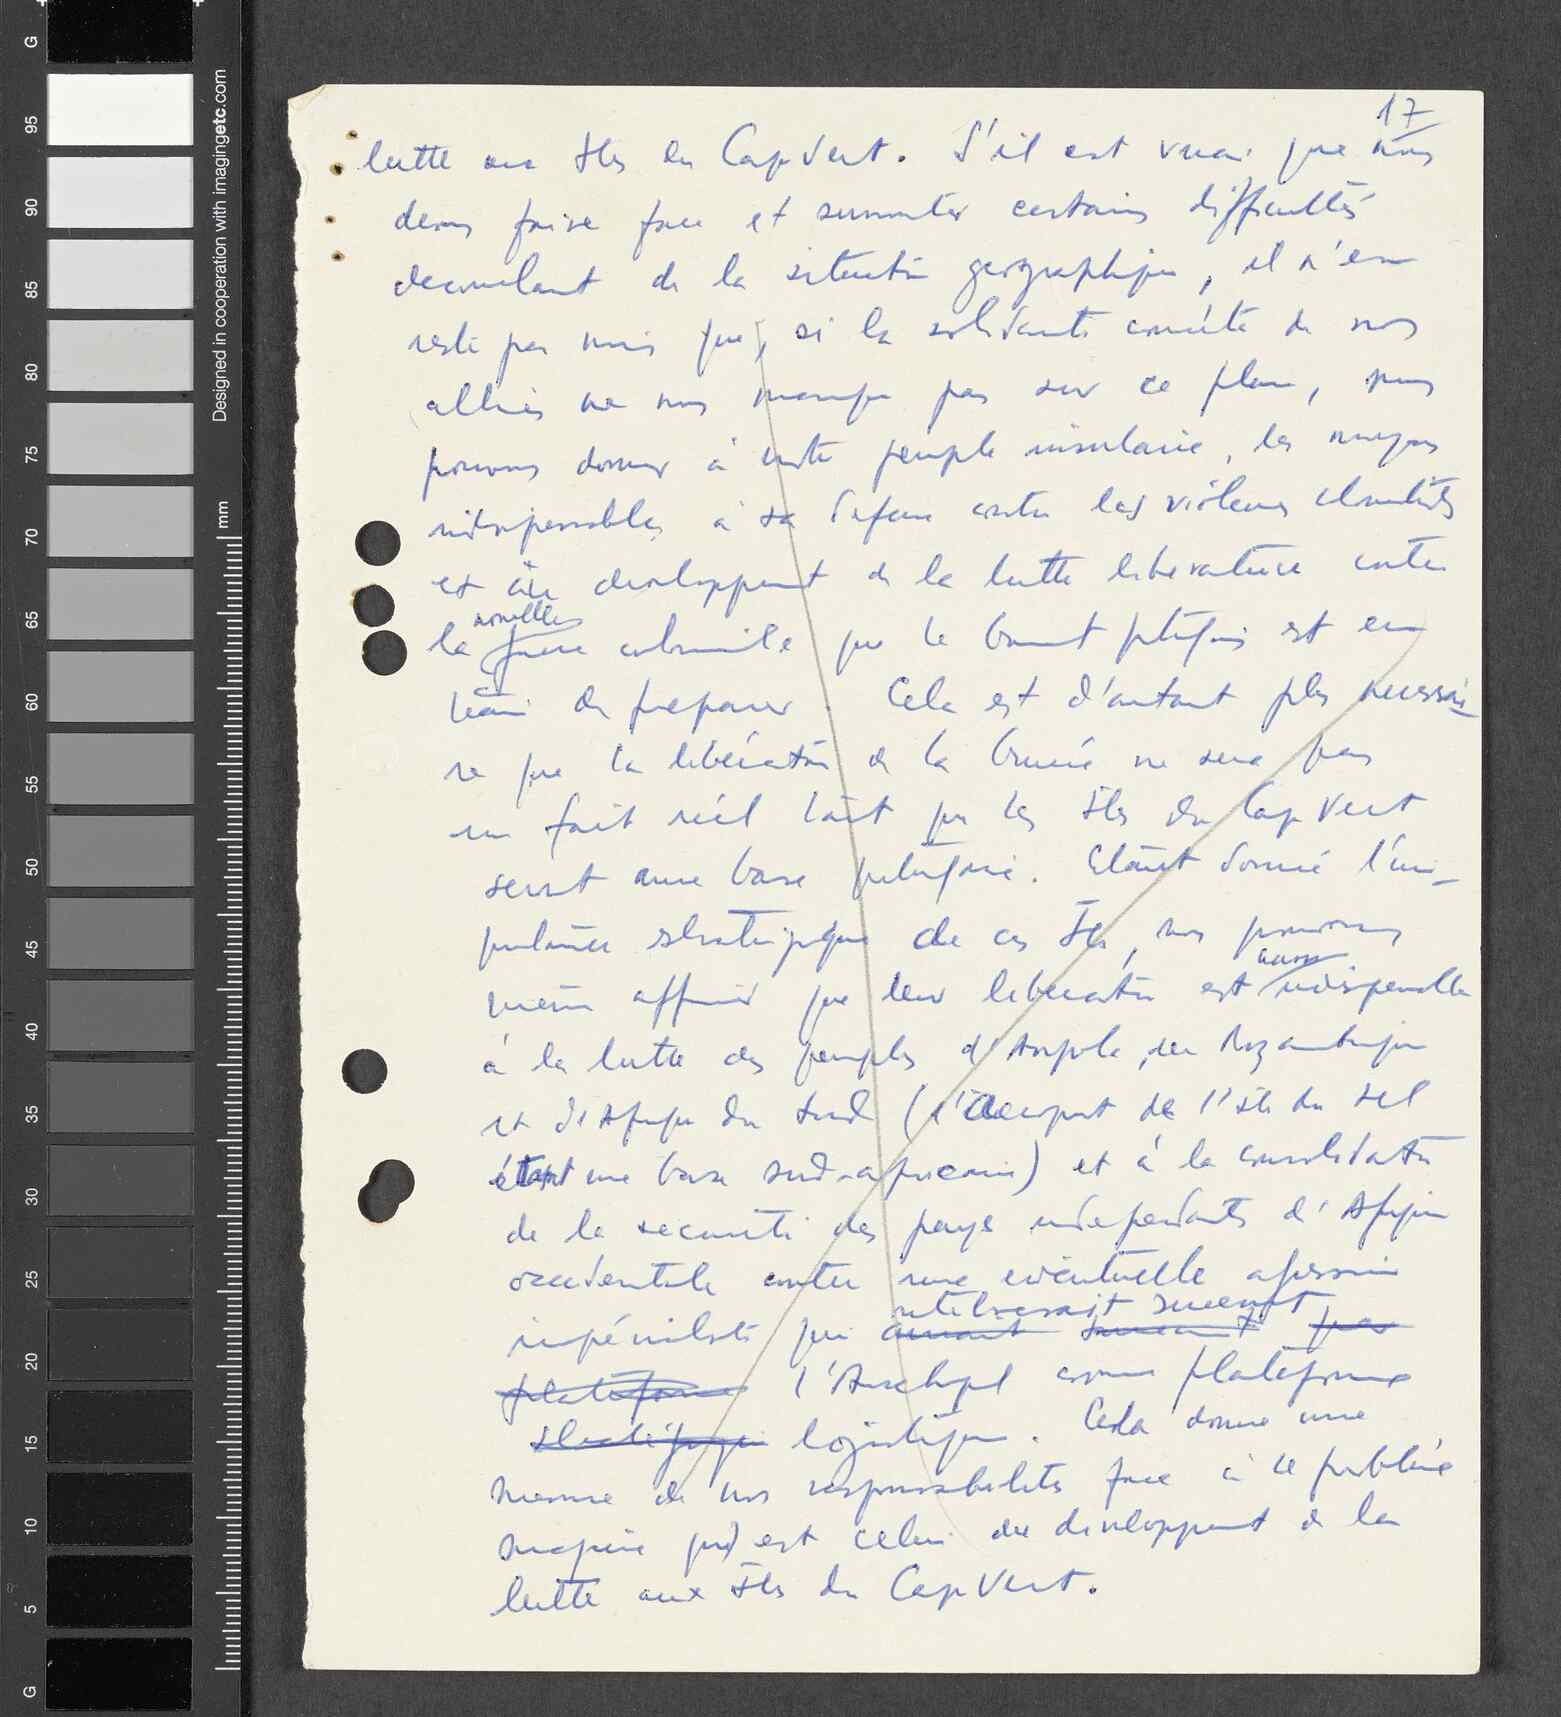 17
lutte aux Iles du Cap Vert. S'il est vrai que nous
devons faire face et surmonter certaines difficultés
decoulant de la situation geographique, il n'en
reste pas moins que, si la solidarité concrète de nos
alliés ne nous manque pas sur ce plan, nous
pouvons donner à notre peuple insulaire, les moyens
indispensables à sa defense contre les violences colonialistes
et au developpement de la lutte liberatrice contre
nouvelle
la guerre coloniale que le Gouvt portugais est en
train de preparer. Cela est d'autant plus necessai-
re que la libération de la Guinée ne sera pas
un fait réel tant que les Iles du Cap Vert
seront une base portugaise. Etant donné l'im-
portance stratégique de ces Iles, nous pouvons
aussi
même affirmer que leur liberation est indispensable
à la lutte des peuples d'Angola, du Mozambique
et d'Afrique du Sud (l'aeroport de l'ile du Sel
étant une base sud-africaine) et à la consolidation
de la securité des pays independants d'Afrique
occidentale contre une eventuelle agression
utiliserait surement
impérialiste qui aurait surement pour
plateforme l'Archipel comme plateforme
stratégique logistique. Cela donne une
mesure de nos responsabilités face à ce problème
majeur qui est celui du developpement de la
lutte aux Iles du Cap Vert.
Designed in cooperation with imagingetc.com
mm
G
95
90
85
80
75
70
65
60
55
50
45
40
35
30
25
20
15
10
5
G